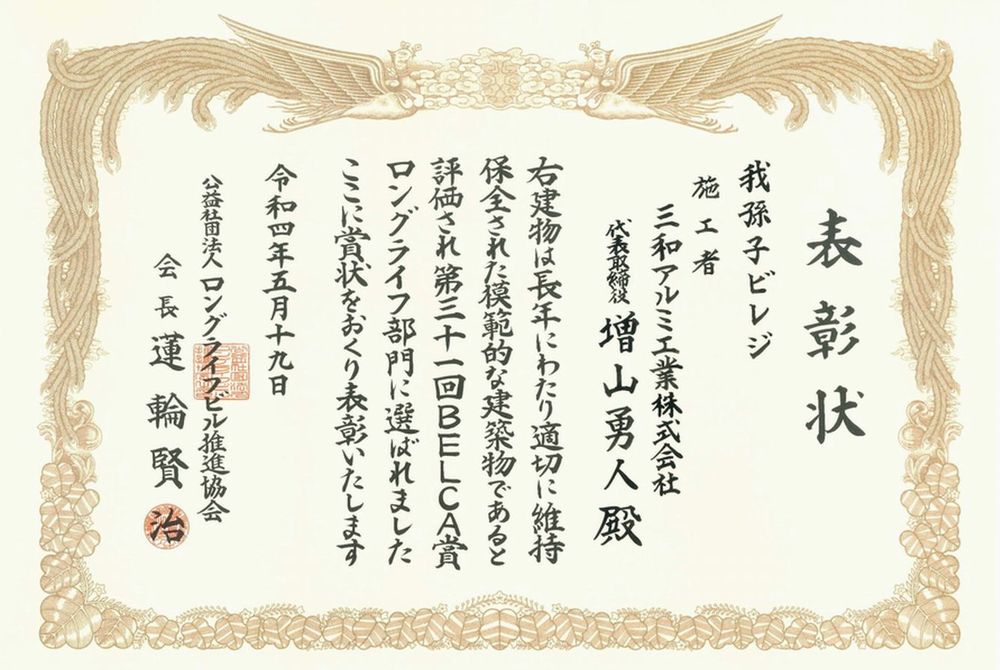 表彰状
我孫子ビレジ
施工者
三和アルミ工業株式会社
代表取締役 増山勇人殿
右建物は長年にわたり適切に維持
保全された模範的な建築物であると
評価され第三十一回BELCA賞
ロングライフ部門に選ばれました
ここに賞状をおくり表彰いたします
令和四年五月十九日
公益社団法人 ロングライフビル推進協会
会長 蓮輪賢治